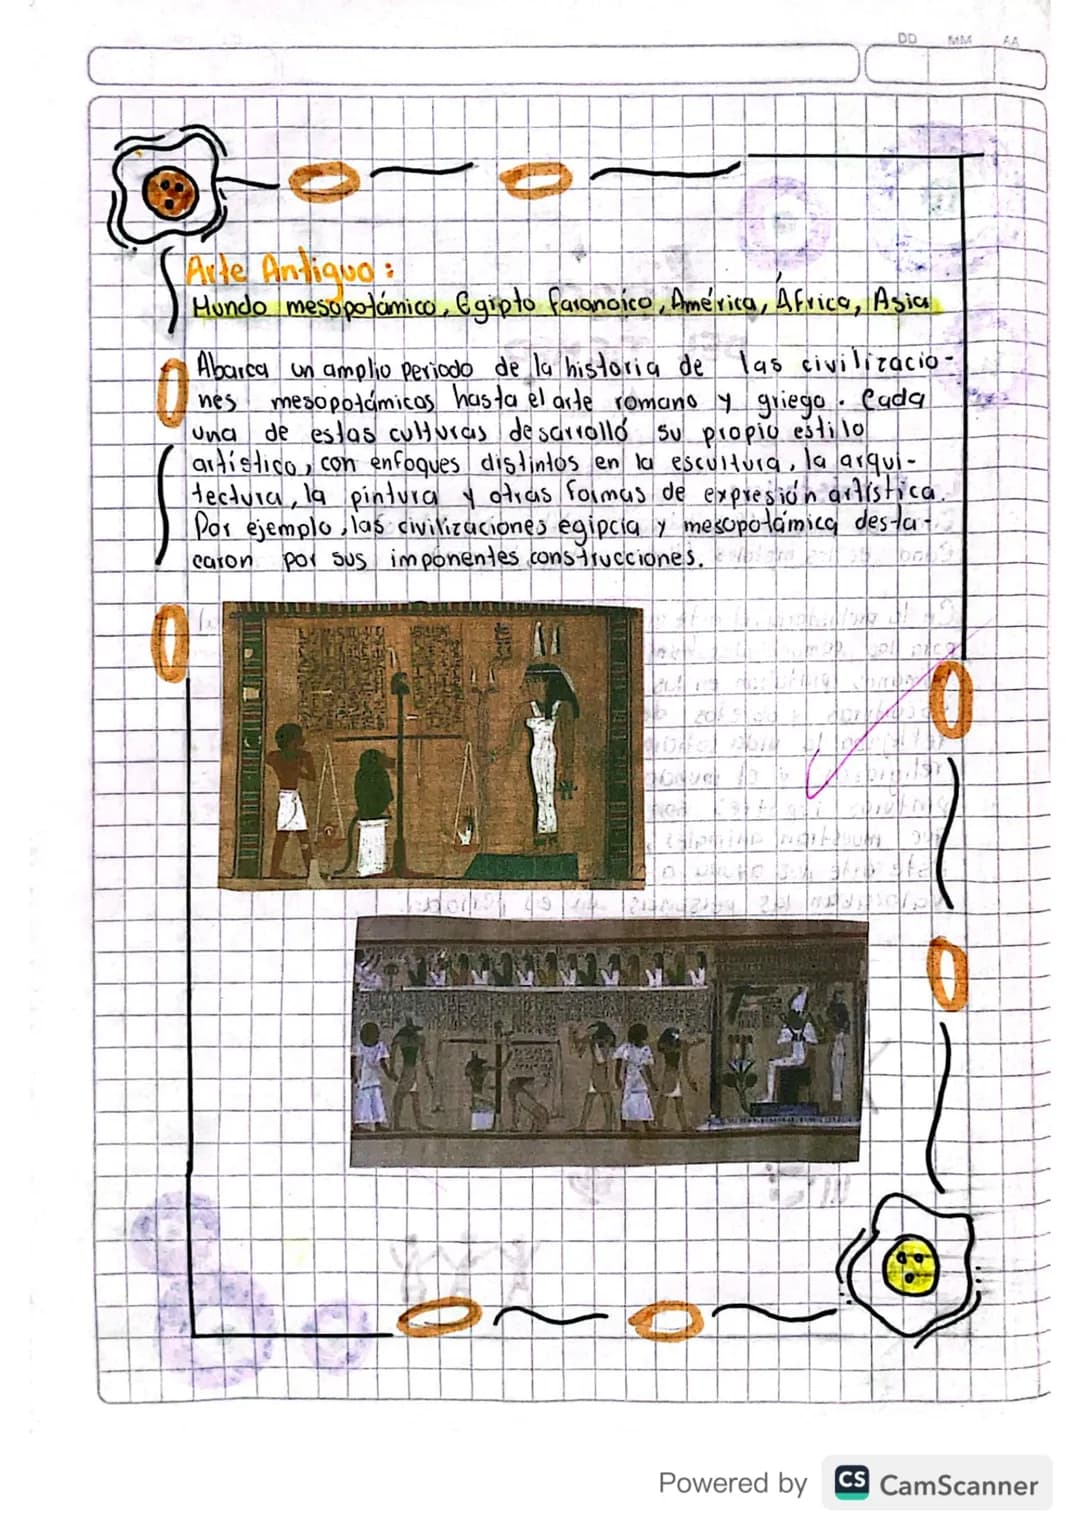 DD MM AA
Arte Antiguo:
Mundo mesopotámico, Egipto faranoico, América, África, Asia
Abarca un amplio periodo de la historia de las civilizacio-
nes mesopotámicas hasta el arte romano y griego. Cada
una de estas culturas desarrolló su propio estilo
artístico, con enfoques distintos en la escultura, la arqui-
tectura, la pintura y otras formas de expresión artística.
Por ejemplo, las civilizaciones egipcia y mesopotámica desta-
caron por sus imponentes construcciones.
Powered by CS CamScanner